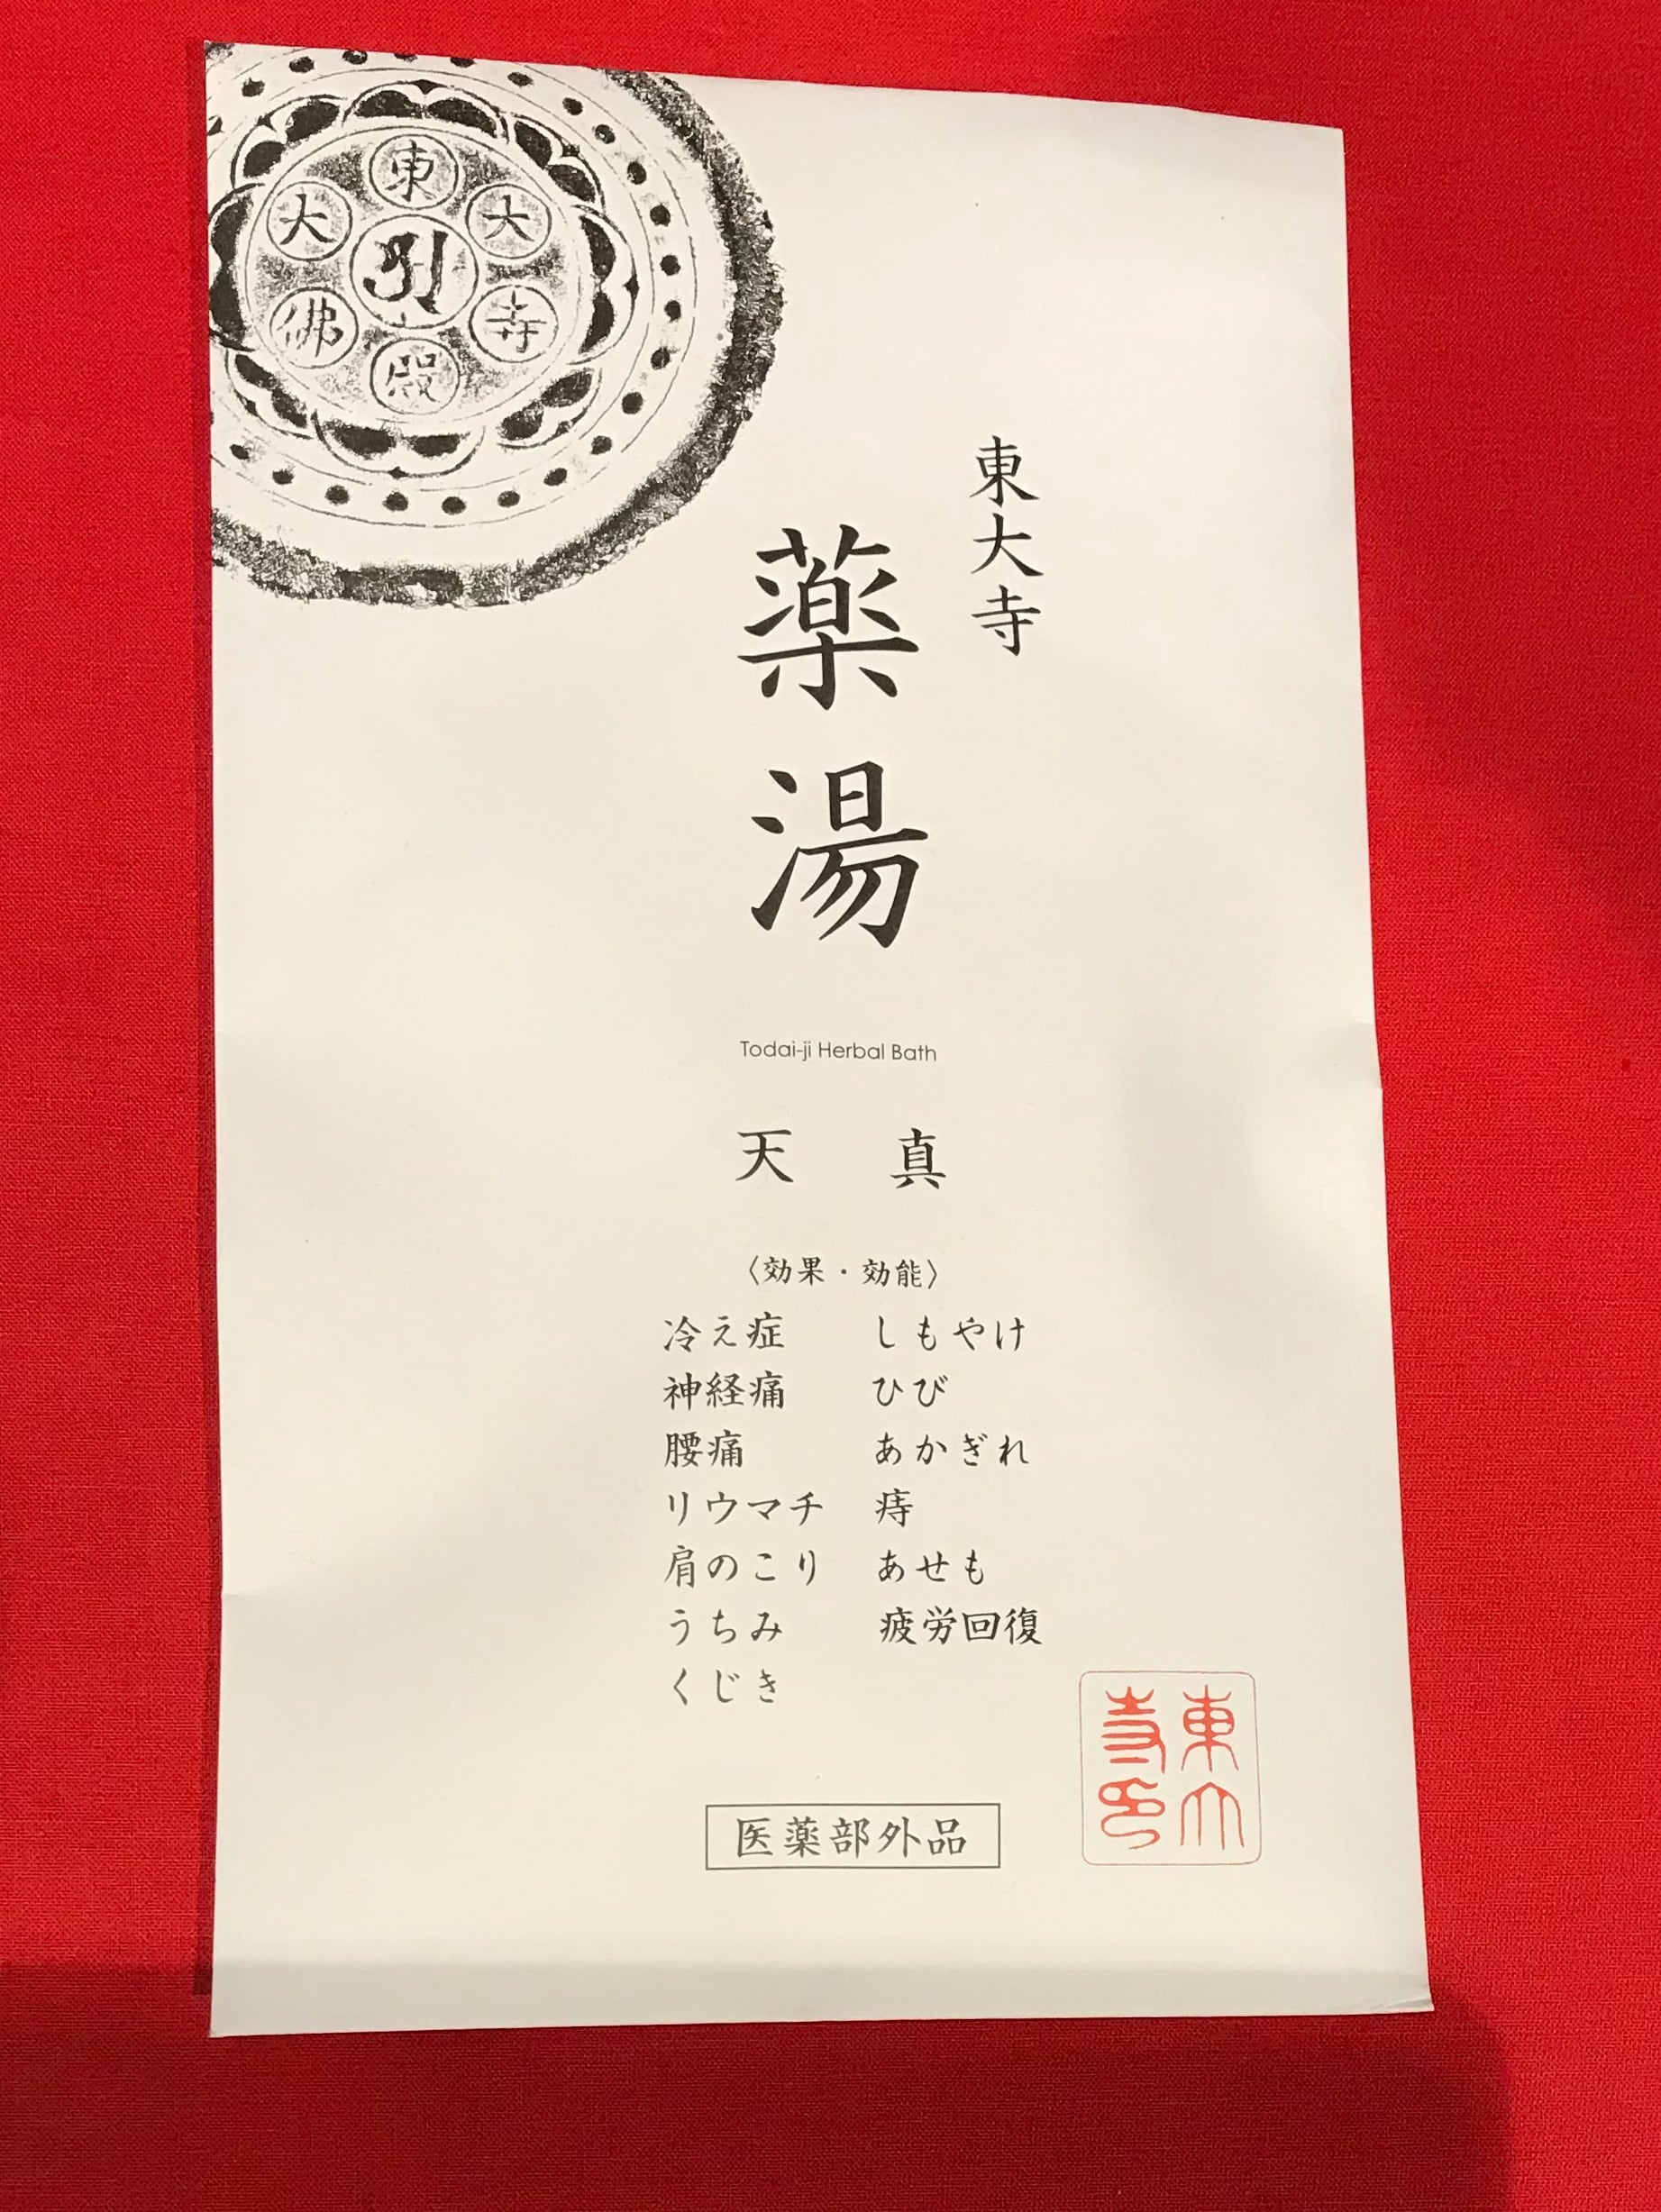 東大寺大佛殿
東大寺
薬湯
Todai-ji Herbal Bath
天 真
〈効果・効能〉
冷え症 しもやけ
神経痛 ひび
腰痛 あかぎれ
リウマチ 痔
肩のこり あせも
うちみ 疲労回復
くじき
医薬部外品
東大
寺印